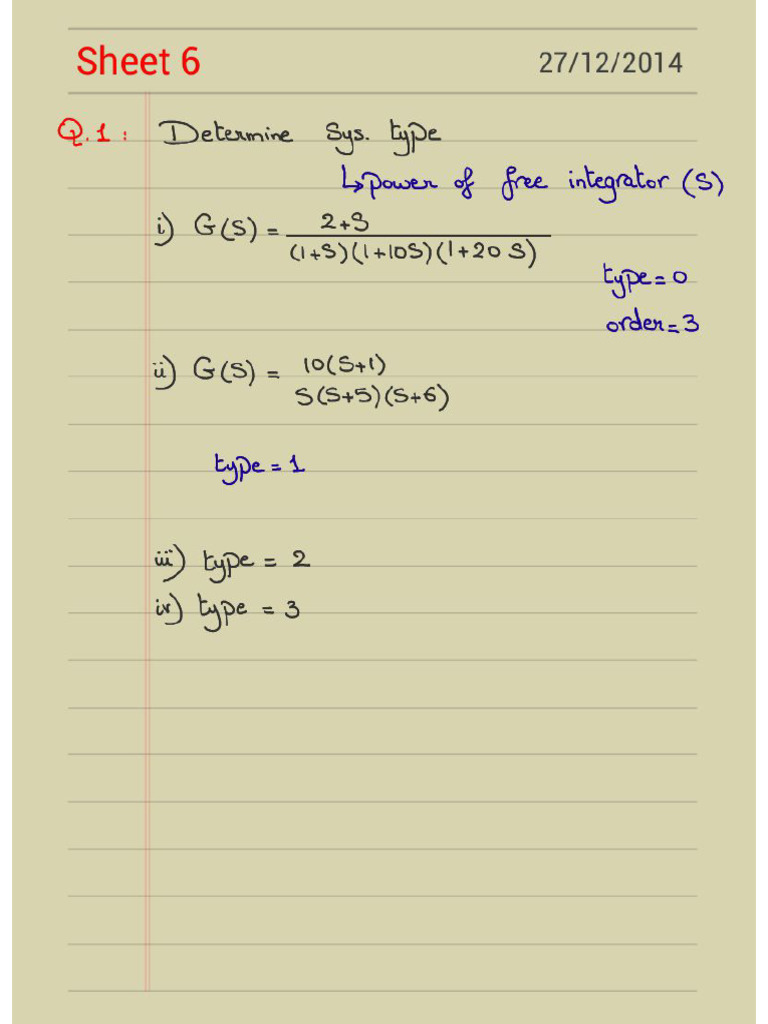 Sheet 6 27/12/2014
Q.1: Determine Sys. type
↳power of free integrator (S)
i) G(S) = 2+S
(1+S)(1+10S)(1+20S)
type=0
order=3
ii) G(S) = 10(S+1)
S(S+5)(S+6)
type=1
iii) type = 2
iv) type = 3